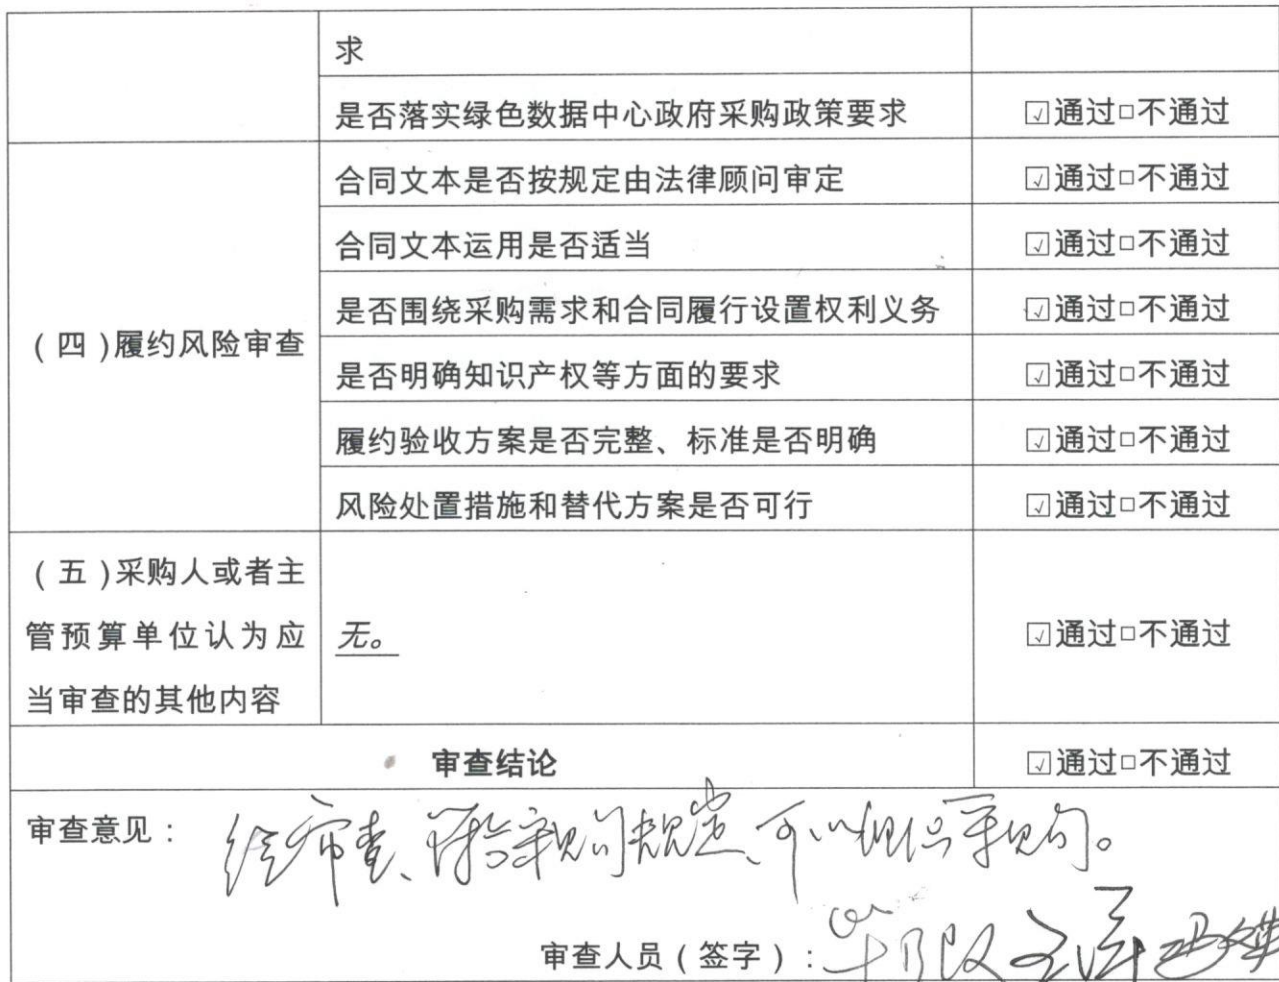 求
是否落实绿色数据中心政府采购政策要求 ☑通过□不通过
合同文本是否按规定由法律顾问审定 ☑通过□不通过
合同文本运用是否适当 ☑通过□不通过
是否围绕采购需求和合同履行设置权利义务 ☑通过□不通过
(四)履约风险审查
是否明确知识产权等方面的要求 ☑通过□不通过
履约验收方案是否完整、标准是否明确 ☑通过□不通过
风险处置措施和替代方案是否可行 ☑通过□不通过
(五)采购人或者主
管预算单位认为应 无。 ☑通过□不通过
当审查的其他内容
审查结论 ☑通过□不通过
审查意见: 经审查、符合采购规定、可以组织采购。
审查人员(签字):